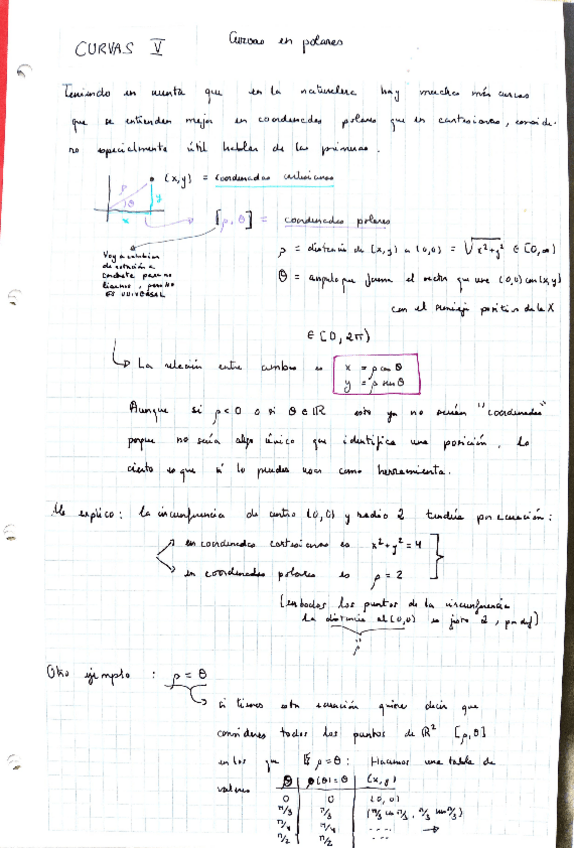 CURVAS V
Curvas en polares
Teniendo en cuenta que en la naturaleza hay muchas más curvas
que se entienden mejor en coordenadas polares que en cartesianas, conside-
ro especialmente útil hablar de las primeras.
(x,y) = coordenadas cartesianas
ρ
θ
y
x
[ρ, θ] = coordenadas polares
Voy a cambiar
de notación a
corchete para no
liarnos, pero no
ES UNIVERSAL
ρ = distancia de (x,y) a (0,0) = √x²+y² ∈ [0,∞)
θ = ángulo que forma el vector que une (0,0) con (x,y)
con el semieje positivo de la X
∈ [0, 2π)
La relación entre ambas es
x = ρ cos θ
y = ρ sen θ
Aunque si ρ<0 o si θ∈ℝ esto ya no serían "coordenadas"
porque no sería algo único que identifica una posición. Lo
cierto es que sí lo puedes usar como herramienta.
Me explico: la circunferencia de centro (0,0) y radio 2 tendría por ecuación:
en coordenadas cartesianas es x²+y²=4
en coordenadas polares es ρ = 2
(en todos los puntos de la circunferencia
la distancia al (0,0) es justo 2, por def)
ρ
Otro ejemplo : ρ = θ
si tienes esta ecuación quiere decir que
consideres todos los puntos de ℝ² [ρ,θ]
en los que ρ=θ: Hacemos una tabla de
valores
θ ρ(θ)=θ (x,y)
0 0 (0,0)
π/3 π/3 (π/3 cos π/3, π/3 sen π/3)
π/4 π/4 ....
π/2 π/2 ....